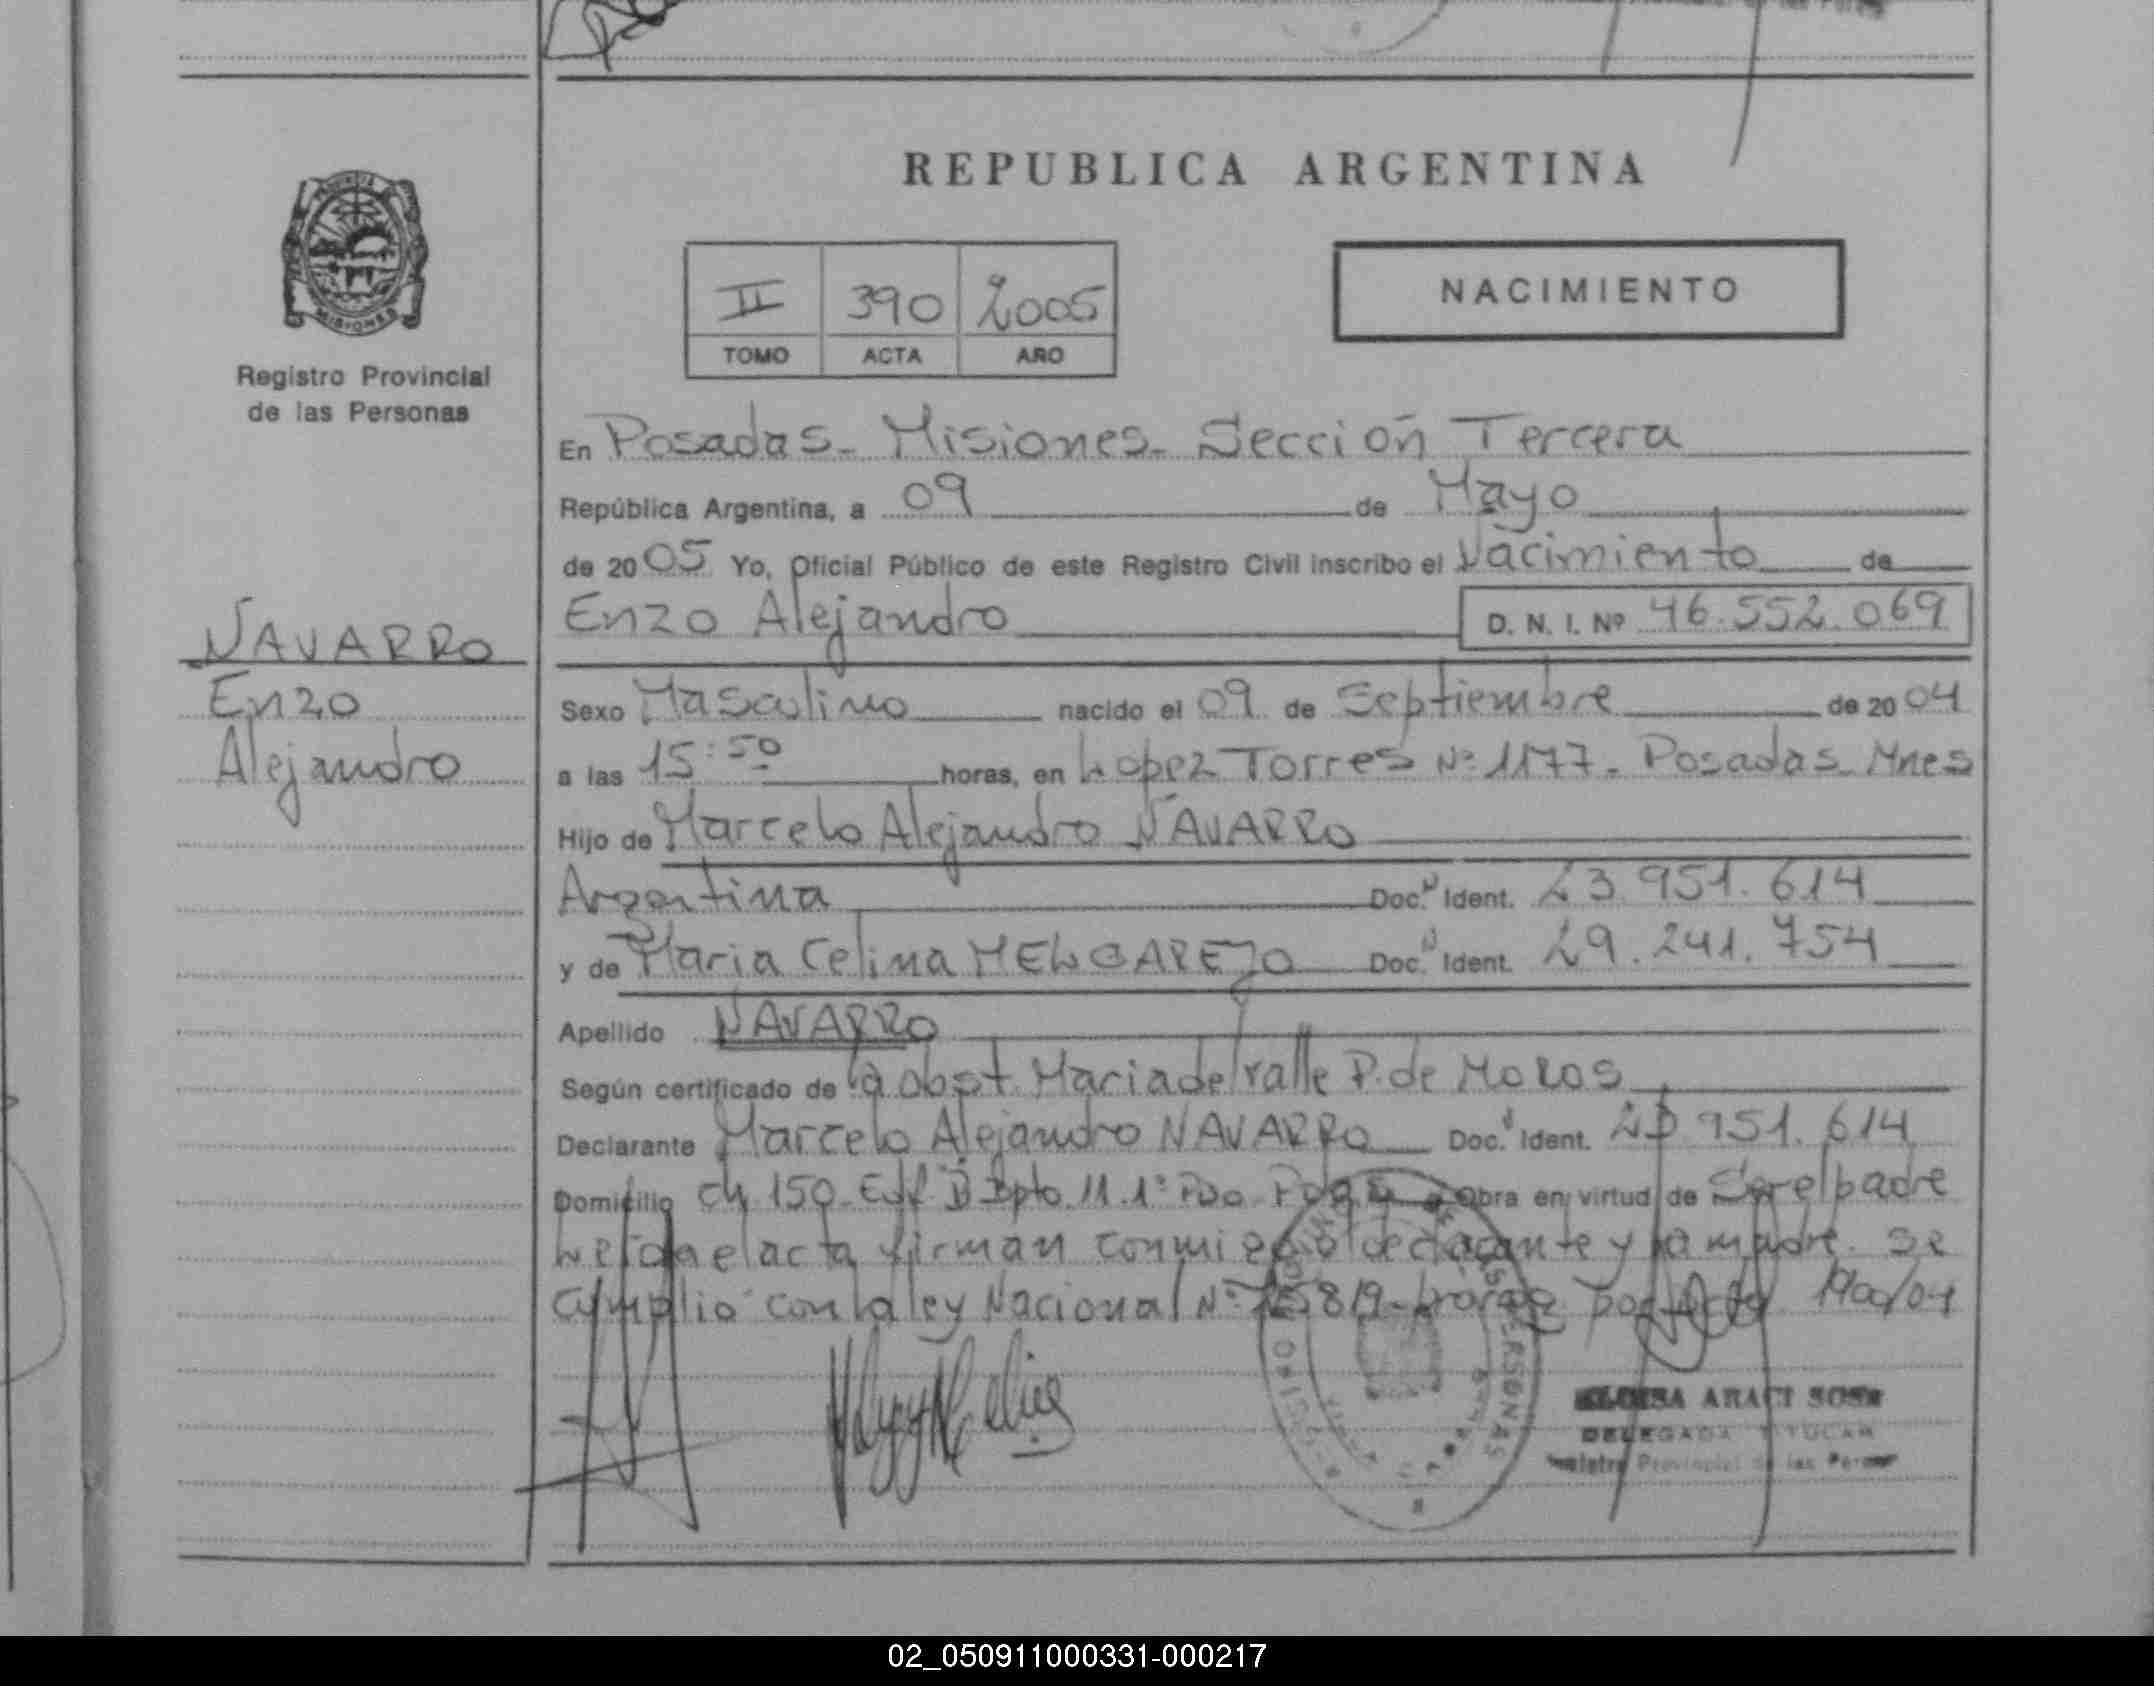 REPUBLICA ARGENTINA
NACIMIENTO
II 390 2005
TOMO ACTA AÑO
MISIONES
Registro Provincial
de las Personas
NAVARRO
Enzo
Alejandro
En Posadas - Misiones - Sección Tercera
República Argentina, a 09 de Mayo
de 2005 Yo, Oficial Público de este Registro Civil inscribo el Nacimiento de
Enzo Alejandro D. N. I. Nº 46.552.069
Sexo Masculino nacido el 09 de Septiembre de 2004
a las 15:50 horas, en Lopez Torres Nº 1177 - Posadas - Mnes
Hijo de Marcelo Alejandro NAVARRO
Argentina Doc. N Ident. 23.951.614
y de Maria Celina MELGAREJO Doc. N Ident. 29.241.754
Apellido NAVARRO
Según certificado de la obst. Maria del Valle P. de Moros
Declarante Marcelo Alejandro NAVARRO Doc. Ident. 23.951.614
Domicilio ch 150 - Edf D Dpto 11 1º Piso obra en virtud de Ser el padre
Leida el acta firman conmigo el declarante y la madre. Se
Cumplio con la ley Nacional Nº
ARACI SOSA
DELEGADA TITULAR
Provincial de las
02_050911000331-000217